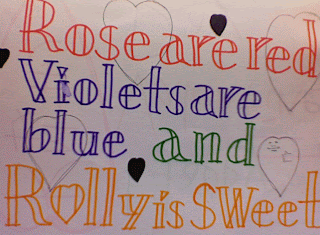 Rose are red
Violets are
blue and
Rolly is Sweet